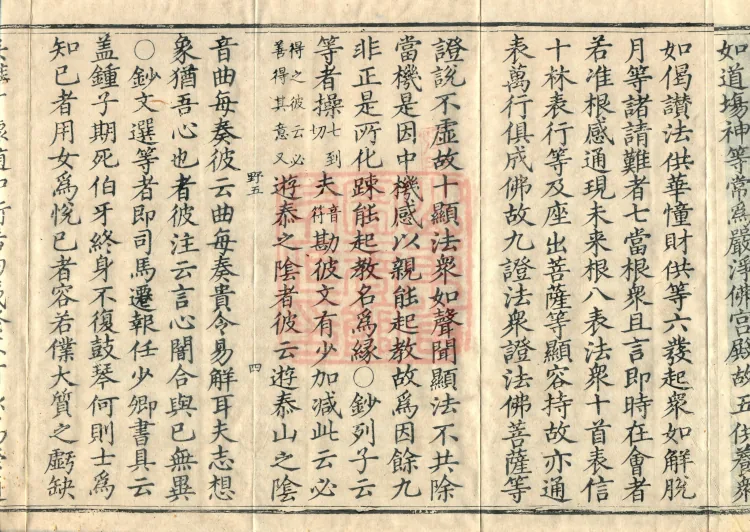 如道場神等常為嚴淨佛宮殿故五住養衆
如偈讃法供華幢財供等六發起衆如解脫
月等諸請難者七當根衆且言即時在會者
若准根感通現未来根八表法衆十首表信
十林表行等及座出菩薩等顯容持故亦通
表萬行俱成佛故九證法衆證法佛菩薩等
證說不虛故十顯法衆如聲聞顯法不共除
當機是因中機感以親能起教故為因餘九
非正是所化踈能起教名為緣〇鈔列子云
等者操七到切夫音符勘彼文有少加減此云必
得之彼云必善得其意又遊泰之陰者彼云遊泰山之陰
野五
四
音曲每奏彼云曲每奏貴令易解耳夫志想
象猶吾心也者彼注云言心闇合與已無異
〇鈔文選等者即司馬遷報任少卿書具云
盖鍾子期死伯牙終身不復鼓琴何則士為
知已者用女為悅已者容若僕大質之虧缺